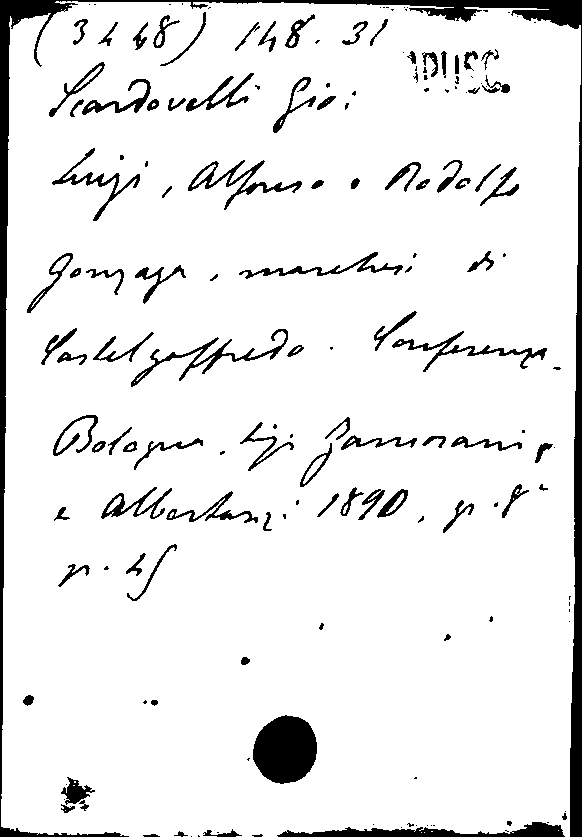 (3448) 148. 31
OPUSC.
Scardovelli Gio:
Luigi, Alfonso e Rodolfo
Gonzaga, marchesi di
Castelgoffredo. Conferenza.
Bologna. tip. Zamorani
e Albertazzi 1890, gr. 8°
p. 45